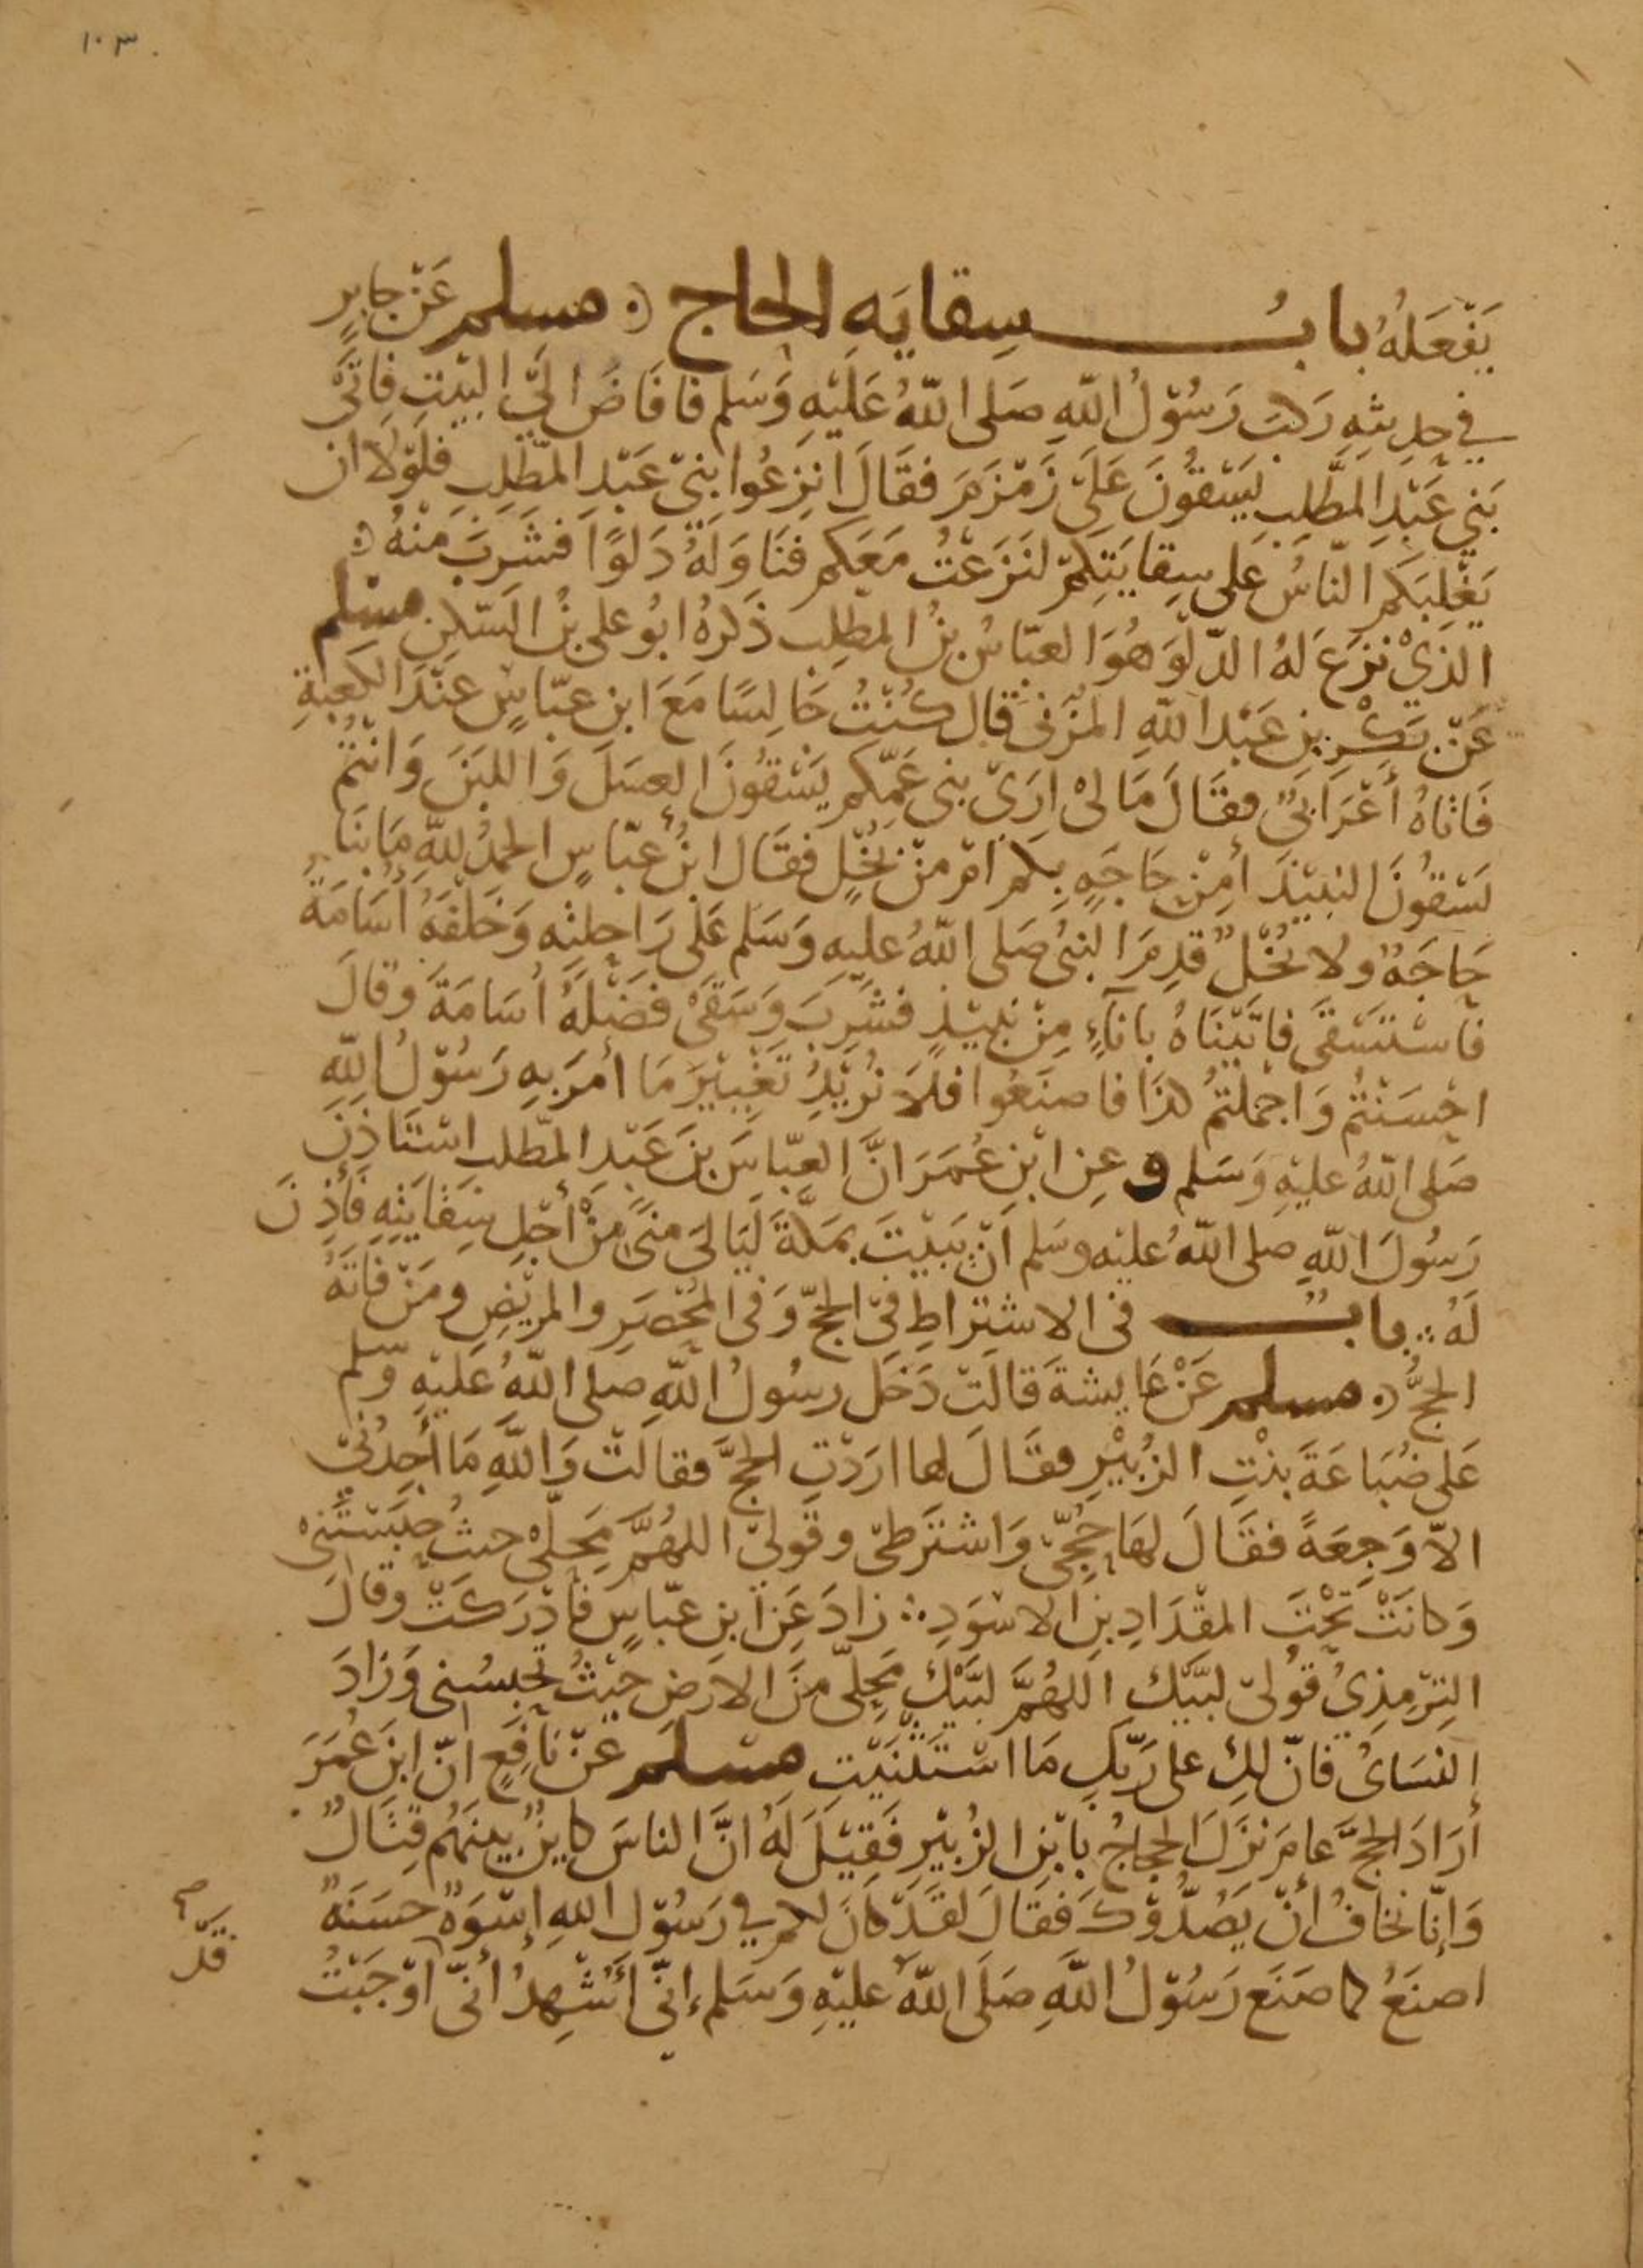 ١٠٣
يَفْعَلُهُ بابُ سِقايَهِ الحاج ۞ مسلم عَنْ جابِرٍ
في حديثِهِ رَكبَ رَسُوْلُ اللهِ صَلى اللهُ عَلَيْهِ وَسَلم فافَاضَ الَي البَيْتِ فاتَى
بَني عَبْدِ المطَّلِبِ يَسْقُونَ عَلَىَ زَمْزَمَ فقَالَ انزِعُوا بَنِىْ عَبْدِ المطَّلِبِ فلَوْلَا ان
يَغْلِبَكم النّاسُ عَلى سِقايَتِكمْ لنَزَعْتُ مَعَكم فنَاوَلوُهُ دَلوًا فشَرِبَ مِنْهُ ۞
الذيْ نزَعَ لهُ الدّلْوَ هُوَ العبّاسُ بنُ المطلِبِ ذَكرهُ ابُو على بنُ السّكنِ مسْلم
عَنْ بَكْرِ بنِ عَبْدِ اللهِ المُزَنىّ قال كُنْتُ جَالِسًا مَعَ ابنِ عبّاسٍ عِنْدَ الكَعبَةِ
فَاتاهُ أَعْرَابىٌّ فقَالَ مَا لىْ ارَىْ بنى عَمّكم يَسْقُونَ العسَلَ وَاللبَنَ وَانْتُمْ
تسْقُونَ النبيْذَ أمِنْ حَاجَهٍ بِكم امْ منْ بُخْلٍ فقَال ابنُ عبّاسٍ الحمدُ للهِ مَا بنَا
حَاجَهٌ ولا بُخْلٌ قدِمَ النبىُ صَلى اللهُ عليهِ وَسَلم عَلى رَاحلتِهِ وَخَلْفَهُ أُسَامَةُ
فاسْتسْقَى فاتَيْنَاهُ باناءٍ مِنْ نبيْذٍ فشَرِبَ وَسَقىَ فضْلَهُ أسَامَةَ وقالَ
احْسَنْتُم وَاجْمَلتمُ كذَا فاصنَعُوا فلَا نُرِيْدُ تَغْيِيْرَ مَا أمَرَ بهِ رَسُوْلُ اللهِ
صَلى اللهُ عليْهِ وَسَلم وعنِ ابْنِ عُمَرَ انَّ العبّاسَ بنَ عَبْدِ المطّلب استَاذنَ
رَسُولَ اللهِ صلى اللهُ عليْهِ وسَلم أنْ يَبيْتَ بمَكّةَ لَيَالىَ مِنىً مِنْ أجْلِ سِقايَتِهِ فَأَذِنَ
لَهُ ∴ بابُ فى الاشتِراطِ فِى الحجّ وَفى المُحْصَرِ والمرِيْضِ ومَنْ فاتَهُ
الحجُّ ۞ مسلم عَنْ عَايشةَ قالَتْ دَخَل رسُولُ اللهِ صلى اللهُ عَليْهِ وسلم
عَلى ضُبَاعَةَ بنْتِ الزُبيْرِ فقَالَ لها ارَدْتِ الحجَّ فقالَتْ وَاللهِ مَا أَجِدُنىْ
الّا وَجِعَةً فقَالَ لهَا حُجّىْ وَاشتَرطىْ وقُولىْ اللهُمَّ مَحِلّىْ حيثُ حبَسْتَنىْ
وَكانَتْ تَحْتَ المقْدَادِ بنِ الاسْوَدِ ∴ زادَ عَنِ ابنِ عبّاسٍ فأدْرَكَتْ وقالَ
التِرْمِذِىُ قُولىْ لبَّيْكَ اللهُمَّ لبَّيْكَ مَحِلّى مِنَ الارضِ حَيْثُ تحْبسُنى وَزادَ
النسَاىُ فانّ لكِ على رَبّكِ مَا اسْتَثْنَيْتِ مسلم عَنْ نافِعٍ انّ ابنَ عُمَرَ
أَرَادَ الحجَّ عامَ نزَلَ الحجاجُ بابْنِ الزُبيْرِ فَقِيْلَ لَهُ انَّ الناسَ كايِنٌ بينَهُم قِتَالٌ
وَإنّا نخافُ أنْ يَصُدُّوْكَ فَقَالَ لقَدْ كانَ لكم في رَسُوْلِ اللهِ إسْوَهٌ حسَنَهٌ
اصنَعُ كما صَنَع رَسُوْلُ اللهِ صَلَى اللهُ عليْهِ وَسَلم إنّى أُشْهِدُ أنّى اوْجَبْتُ